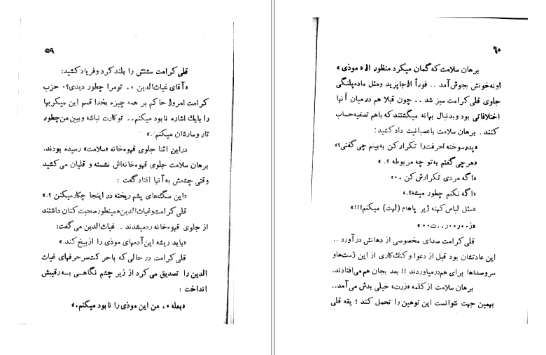 ۵۹
قلی کرامت مشتش را بلند کرد و فریاد کشید:
«آقای غیاث‌الدین ۰۰ تومرا چطور دیدی؟۰ حزب
کرامت امروز حاکم بر همه چیزه بخدا قسم این میکربها
را بایك اشاره نابود میکنم.. تو کارت نباشه و ببین من چطور
تار و مارشان میکنم۰»
در این اثنا جلوی قهوه‌خانه «سلامت» رسیده بودند.
برهان سلامت جلوی قهوه‌خانه‌اش نشسته و قلیان می‌کشید
وقتی چشمش به آنها افتاد گفت:
«این سگ‌های پشم ریخته در اینجا چکار میکنن ؟۰»
قلی کرامت و غیاث‌الدین همینطور صحبت کنان داشتند
از جلوی قهوه‌خانه رد میشدند.. غیاث‌الدین می‌گفت:
«باید ریشه این آدمهای موذی را از بیخ کند»
قلی کرامت در حالی که با حرکت سر حرفهای غیاث
الدین را تصدیق می‌کرد از زیر چشم نگاهی به رقیبش
انداخت:
«بعله ۰. من این موذی را نابود میکنم۰»
۶۰
برهان سلامت که گمان میکرد منظور از «موذی»
اونه خونش جوش آمد.. فوراً از جا پرید و مثل ماده پلنگی
جلوی قلی کرامت سبز شد.. چون قبلا هم در میان آنها
اختلافاتی بود و بدنبال بهانه میگشتند که باهم تصفیه حساب
کنند. برهان سلامت با عصبانیت داد کشید:
«پدرسوخته احرفت را تکرار کن به‌بینم چی گفتی؟»
«هر چی گفتم به‌تو چه مربوطه ؟۰»
«اگه مردی تکرارش کن ۰۰»
«اگه نکنم چطور میشه؟۰»
«مثل لباس کهنه زیر پاهام (لهت) میکنم!!!»
«ز۰۰ر۰۰ر۰۰ت۰۰»
قلی کرامت صدای مخصوصی از دهانش در آورد..
این عادتشان بود قبل از دعوا و کتک کاری از این ژست‌ها و
سر و صداها برای هم در میاوردند!! بعد بجان هم می‌افتادند.
برهان سلامت از کلمه «زرت» خیلی بدش می‌آمد..
بهمین جهت نتوانست این توهین را تحمل کند! یقه قلی